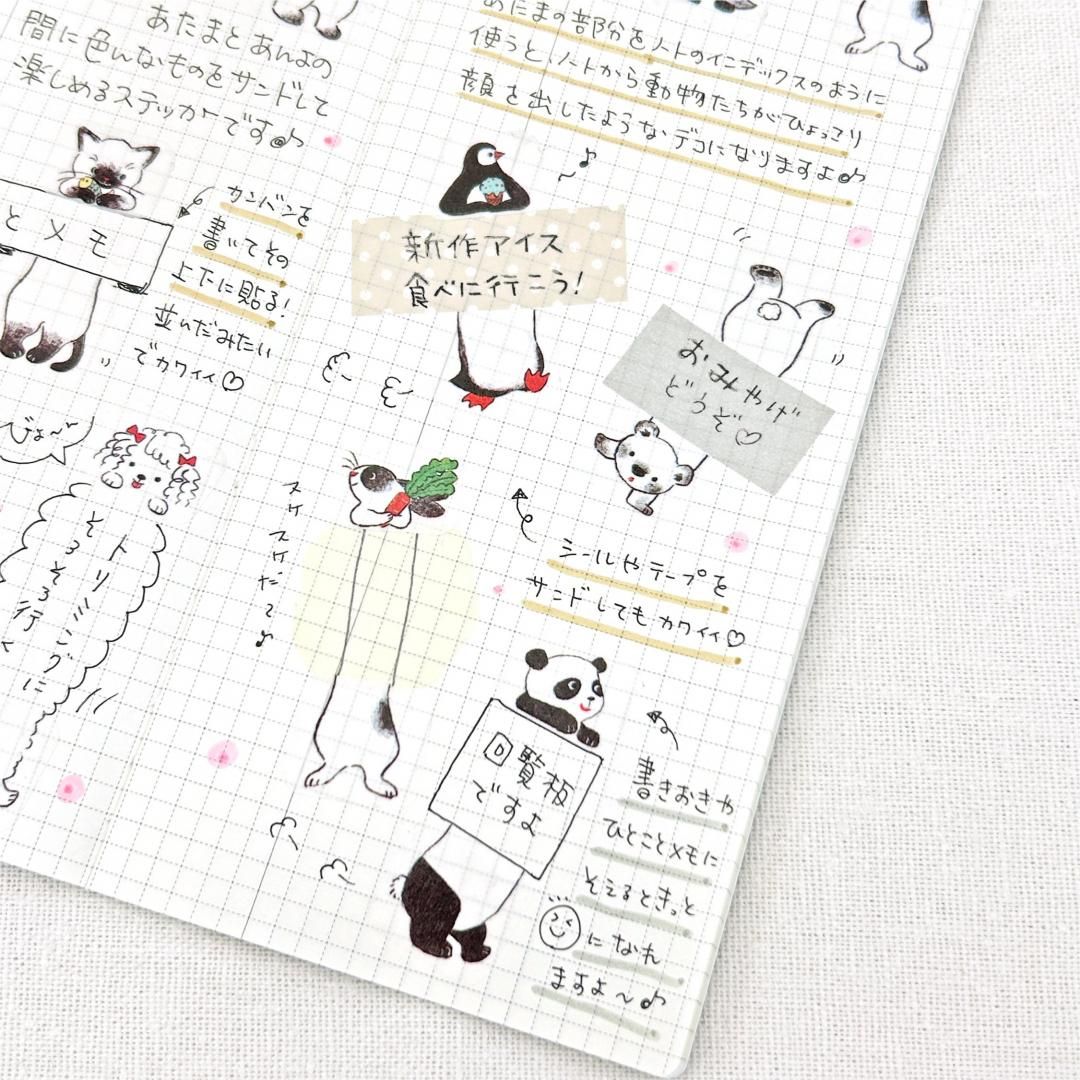 あたまとあんよの
間に色んなものをサンドして
楽しめるステッカーです♪
あたまの部分をノトのインデックスのように
使うと、ノートから動物たちがひょっこり
顔を出したようなデコになりますよ♪
とメモ
カンバンを
書いてその
上下に貼る!
並んだみたい
でカワイイ♡
新作アイス
食べに行こう!
おみやげ
どうぞ♡
びよ〜ん
トリミングに
そろそろ行く
スケスケだ〜♪
シールやテープを
サンドしてもカワイイ♡
回覧板
ですよ
書きおきや
ひとことメモに
そえるときっと
になれ
ますよ〜♪